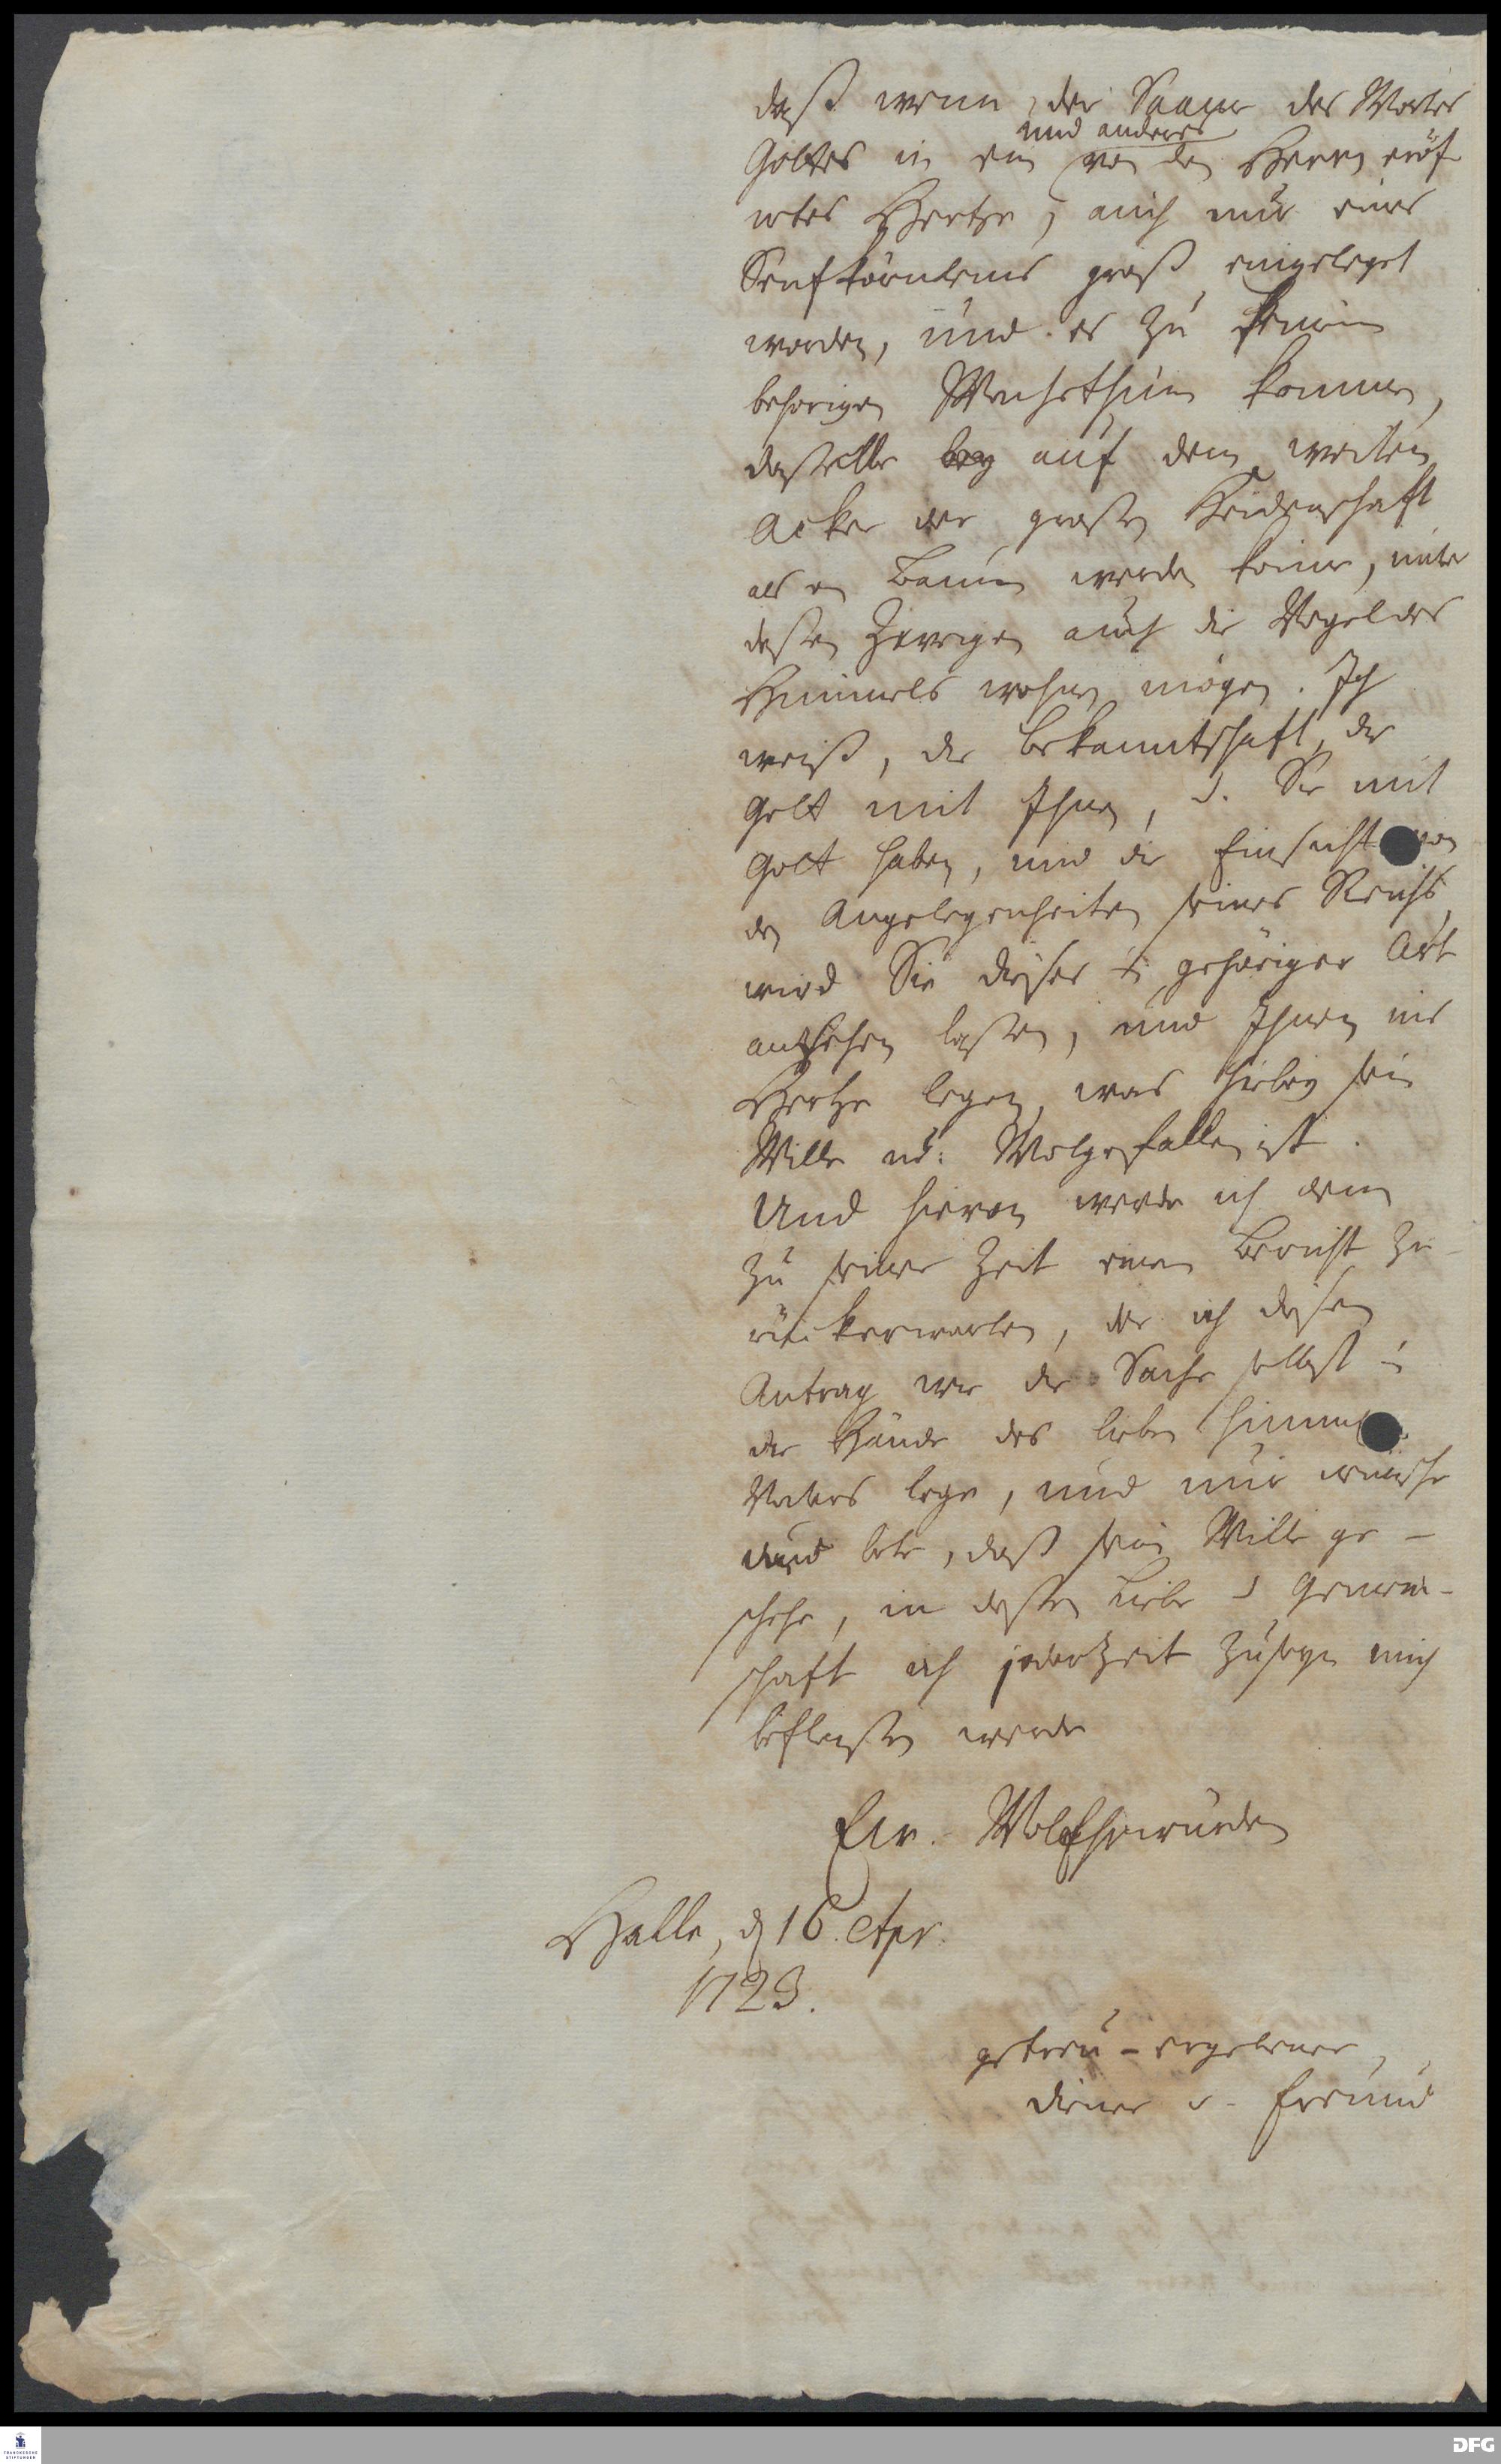 daß wenn der Saame des Wortes
und anderes
Gottes in ein von dem Herrn eröf-
netes Hertze, auch nur eines
Senfkörnleins groß eingeleget
worden, und es zu seinem
behörigen Wachsthum kommen,
dasselbe bey auf dem weiten
Acker der großen Heidenschaft
als ein Baum werden könne, unter
deßen Zweigen auch die Vögel des
Himmels wohnen mögen. Ich
weiß, die Bekanntschaft, die
Gott mit Ihnen, u. Sie mit
Gott haben, und die Einsicht von
den Angelegenheiten seines Reichs
wird Sie dieses in gehöriger Art
ansehen laßen, und Ihnen ins
Hertze legen, was hiebey sein
Wille ud: Wolgefallen ist.
Und hievon werde ich denn
zu seiner Zeit einen Bericht zu-
rückerwarten, der ich diesen
Antrag wie die Sache selbst in
die Hände des lieben himml.
Vaters lege, und nur wünsche
und bete, daß sein Wille ge-
schehe, in deßen Liebe u Gemein-
schaft ich jederzeit zuseyn mich
befleißen werde
Ew. WolEhrwürden
Halle, d 16. Apr.
1723.
getreu-ergebener
Diener u. Freund
FRANCKESCHE
STIFTUNGEN
DFG